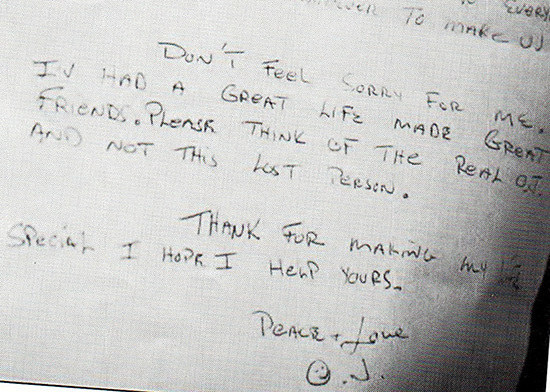 EVERY
TO MAKE US
DON'T FEEL SORRY FOR ME.
IV HAD A GREAT LIFE MADE GREAT
FRIENDS. PLEASR THINK OF THE REAL O.J.
AND NOT THIS LOST PERSON.
THANK FOR MAKING MY LIFE
SPECIAL I HOPR I HELP YOURS.
PEACE + LOVE
☺.J.